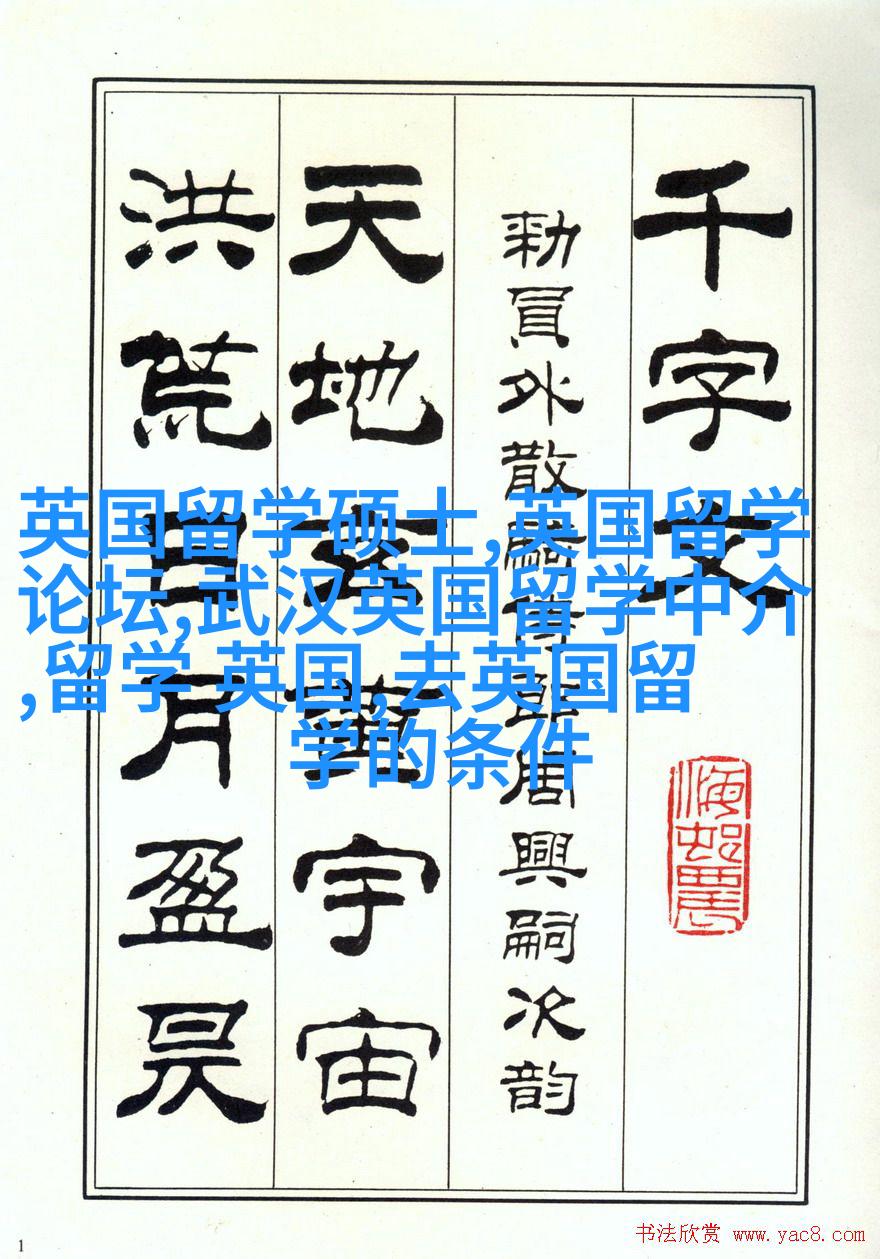 千字文
勑員外散騎侍郎周興嗣次韵
天地玄黃宇宙
洪荒日月盈昃
英国留学硕士,英国留学
论坛,武汉英国留学中介
,留学 英国,去英国留
学的条件
1
书法欣赏 www.yac8.com